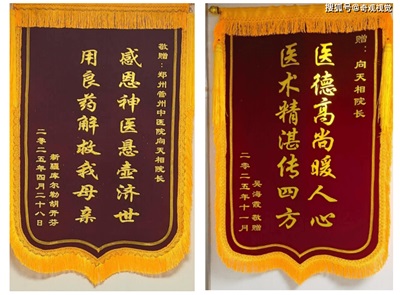 搜狐号@奇观视觉
敬赠：郑州管州中医院向天相院长
感恩神医悬壶济世
用良药解救我母亲
新疆库尔勒胡开芬
二零二五年四月二十八日
赠：向天相院长
医德高尚暖人心
医术精湛传四方
吴海霞 敬赠
二零二五年十一月